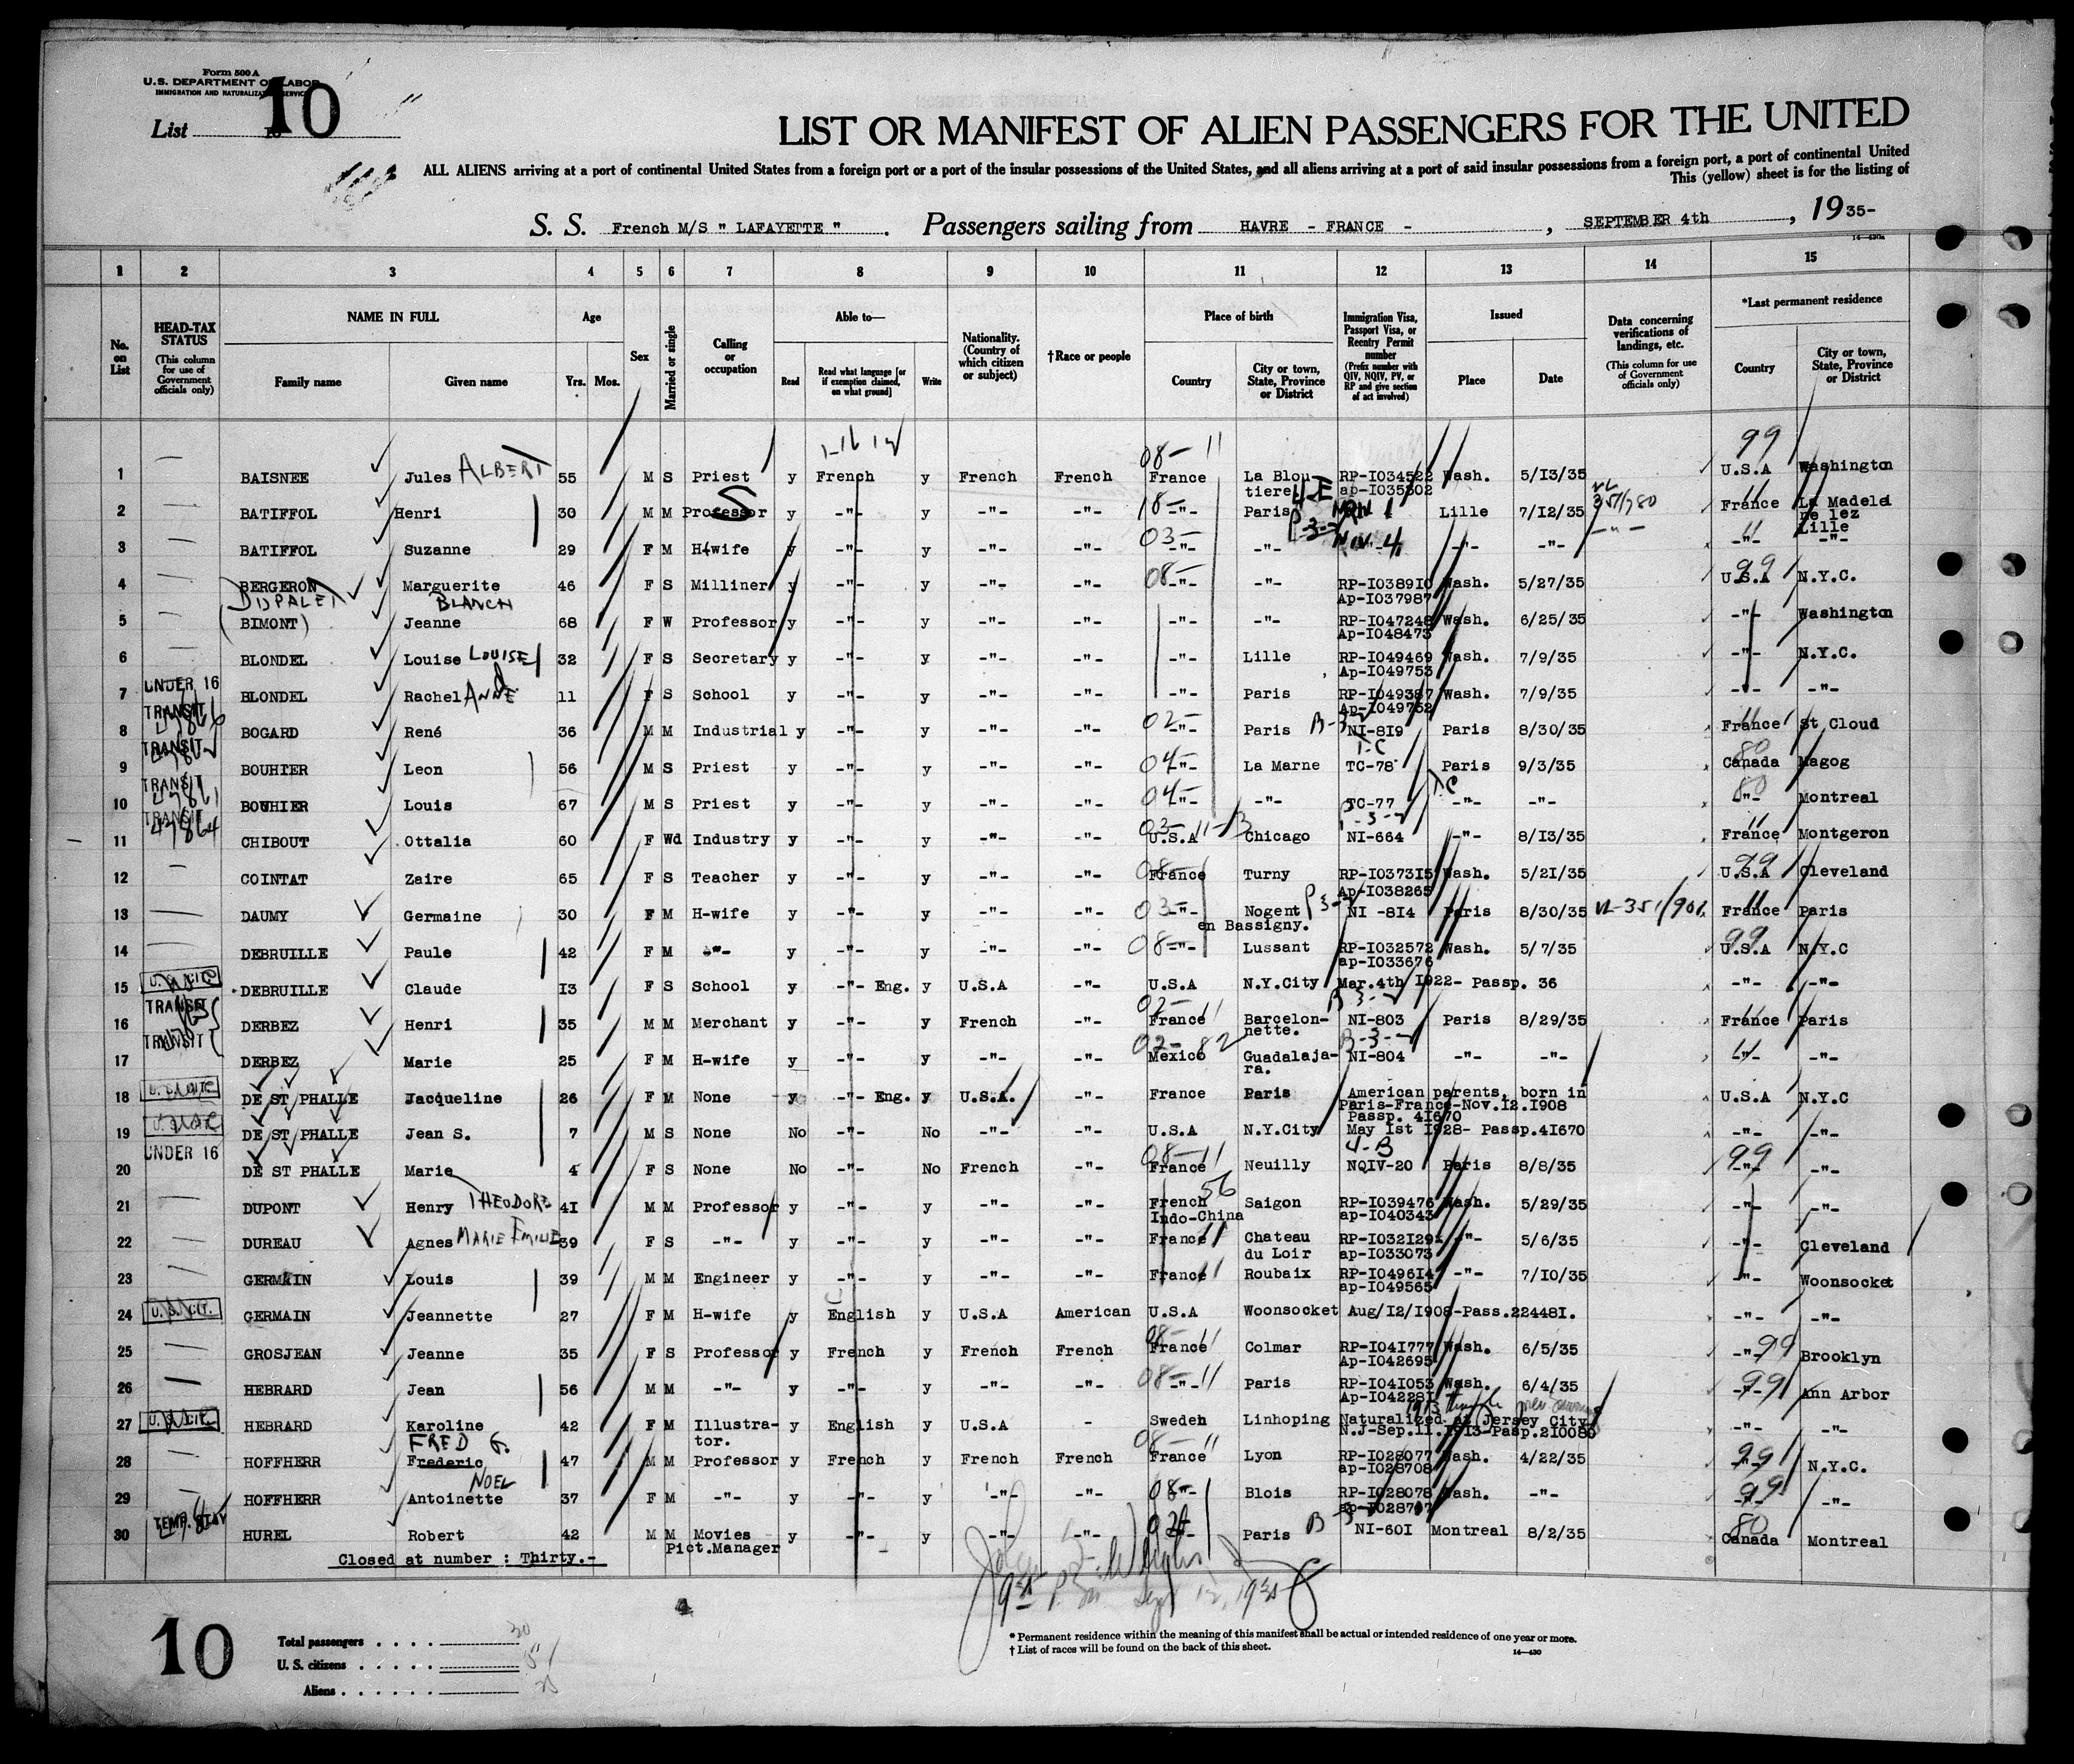 Form 500 A
U.S. DEPARTMENT OF LABOR
IMMIGRATION AND NATURALIZATION SERVICE
List 10
LIST OR MANIFEST OF ALIEN PASSENGERS FOR THE UNITED
ALL ALIENS arriving at a port of continental United States from a foreign port or a port of the insular possessions of the United States, and all aliens arriving at a port of said insular possessions from a foreign port, a port of continental United
This (yellow) sheet is for the listing of
S. S. French M/S " LAFAYETTE " . Passengers sailing from HAVRE - FRANCE - , SEPTEMBER 4th , 1935-
14-430a
1 2 3 4 5 6 7 8 9 10 11 12 13 14 15
No. on List
HEAD-TAX STATUS (This column for use of Government officials only)
NAME IN FULL Family name Given name
Age Yrs. Mos.
Sex
Married or single
Calling or occupation
Able to— Read Read what language [or if exemption claimed, on what ground] Write
Nationality. (Country of which citizen or subject)
†Race or people
Place of birth Country City or town, State, Province or District
Immigration Visa, Passport Visa, or Reentry Permit number (Prefix number with QIV, NQIV, PV, or RP and give section of act involved)
Issued Place Date
Data concerning verifications of landings, etc. (This column for use of Government officials only)
*Last permanent residence Country City or town, State, Province or District
1 BAISNEE Jules ALBERT 55 M S Priest y French y French French 08- 11 France La Blou tiere RP-I034522 ap-I035302 Wash. 5/I3/35 99 U.S.A Washington
2 BATIFFOL Henri 30 M M Professor y -"- y -"- -"- -"- Paris Lille 7/I2/35 France La Madelei ne lez Lille
3 BATIFFOL Suzanne 29 F M H-wife y -"- y -"- -"- 03- -"- -"- -"- -"- -"- -"-
4 BERGERON Marguerite 46 F S Milliner y -"- y -"- -"- 08- -"- -"- RP-I0389I0 Ap-I037987 Wash. 5/27/35 99 U.S.A N.Y.C.
5 (BIMONT) Jeanne BLANCH 68 F W Professor y -"- y -"- -"- -"- -"- RP-I047248 Ap-I048473 Wash. 6/25/35 -"- Washington
6 BLONDEL Louise LOUISE 32 F S Secretary y -"- y -"- -"- -"- Lille RP-I049469 Ap-I049753 Wash. 7/9/35 -"- N.Y.C.
7 UNDER 16 BLONDEL Rachel ANNE 11 F S School y -"- y -"- -"- -"- Paris RP-I049387 Ap-I049752 Wash. 7/9/35 -"- -"-
8 TRANSIT BOGARD René 36 M M Industrial y -"- y -"- -"- 02- -"- Paris NI-8I9 Paris 8/30/35 France St Cloud
9 TRANSIT BOUHIER Leon 56 M S Priest y -"- y -"- -"- 04- -"- La Marne TC-78 Paris 9/3/35 80 Canada Magog
10 TRANSIT BOUHIER Louis 67 M S Priest y -"- y -"- -"- 04- -"- -"- TC-77 -"- -"- 80 -"- Montreal
11 TRANSIT 47864 CHIBOUT Ottalia 60 F Wd Industry y -"- y -"- -"- U.S.A Chicago NI-664 -"- 8/I3/35 France Montgeron
12 COINTAT Zaire 65 F S Teacher y -"- y -"- -"- France Turny RP-I0373I5 Ap-I038265 Wash. 5/2I/35 99 U.S.A Cleveland
13 DAUMY Germaine 30 F M H-wife y -"- y -"- -"- 03- -"- Nogent en Bassigny. NI -8I4 Paris 8/30/35 France Paris
14 DEBRUILLE Paule 42 F M -"- y -"- y -"- -"- 08- -"- Lussant RP-I032572 ap-I033676 Wash. 5/7/35 99 U.S.A N.Y.C
15 U.S. CIT. DEBRUILLE Claude I3 F S School y -"- Eng. y U.S.A -"- U.S.A N.Y.City Mar.4th I922- Passp. 36 -"- -"-
16 TRANSIT DERBEZ Henri 35 M M Merchant y -"- y French -"- 02- 11 France Barcelon- nette. NI-803 Paris 8/29/35 France Paris
17 TRANSIT DERBEZ Marie 25 F M H-wife y -"- y -"- -"- 02- 82 Mexico Guadalaja- ra. NI-804 -"- -"- -"- -"-
18 U.S. CIT. DE ST PHALLE Jacqueline 26 F M None y -"- Eng. y U.S.A. -"- France Paris American parents, born in Paris-France-Nov.I2.I908 Passp. 4I670 U.S.A N.Y.C
19 DE ST PHALLE Jean S. 7 M S None No -"- No -"- -"- U.S.A N.Y.City May Ist I928- Passp.4I670 -"- -"-
20 UNDER 16 DE ST PHALLE Marie 4 F S None No -"- No French -"- 08- 11 France Neuilly 4-B NQIV-20 Paris 8/8/35 99 -"- -"-
21 DUPONT Henry THEODORE 4I M M Professor y -"- y -"- -"- French Indo-China 56 Saigon RP-I039476 ap-I040343 Wash. 5/29/35 -"- -"-
22 DUREAU Agnes MARIE EMILIE 39 F S -"- y -"- y -"- -"- France 11 Chateau du Loir RP-I032I29 ap-I033073 -"- 5/6/35 -"- Cleveland
23 GERMAIN Louis 39 M M Engineer y -"- y -"- -"- France 11 Roubaix RP-I0496I4 ap-I049565 -"- 7/I0/35 -"- Woonsocket
24 U.S. CIT. GERMAIN Jeannette 27 F M H-wife y English y U.S.A American U.S.A Woonsocket Aug/I2/I908-Pass.22448I. -"- -"-
25 GROSJEAN Jeanne 35 F S Professor y French y French French 08- 11 France Colmar RP-I04I777 Ap-I042695 Wash. 6/5/35 -"- 99 Brooklyn
26 HEBRARD Jean 56 M M -"- y -"- y -"- -"- 08- -"- 11 Paris RP-I04I053 Ap-I04228I Wash. 6/4/35 -"- 99 Ann Arbor
27 U.S. CIT. HEBRARD Karoline 42 F M Illustra- tor. y English y U.S.A - Sweden Linhoping Naturalized at Jersey City N.J-Sep.II.I9I3-Passp.2I0085 -"- -"-
28 HOFFHERR Frederic FRED G. 47 M M Professor y French y French French 08- 11 France Lyon RP-I028077 ap-I028708 Wash. 4/22/35 99 -"- N.Y.C.
29 HOFFHERR Antoinette NOEL 37 F M -"- y -"- y -"- -"- 08- -"- Blois RP-I028078 ap-I028707 Wash. -"- 99 -"- -"-
30 TEMP. STAY HUREL Robert 42 M M Movies Pict.Manager y -"- y -"- -"- 02- -"- Paris NI-60I Montreal 8/2/35 80 Canada Montreal
Closed at number : Thirty.-
10
Total passengers . . . . 30
U. S. citizens . . . . .
Aliens . . . . . .
* Permanent residence within the meaning of this manifest shall be actual or intended residence of one year or more.
† List of races will be found on the back of this sheet.
14-430